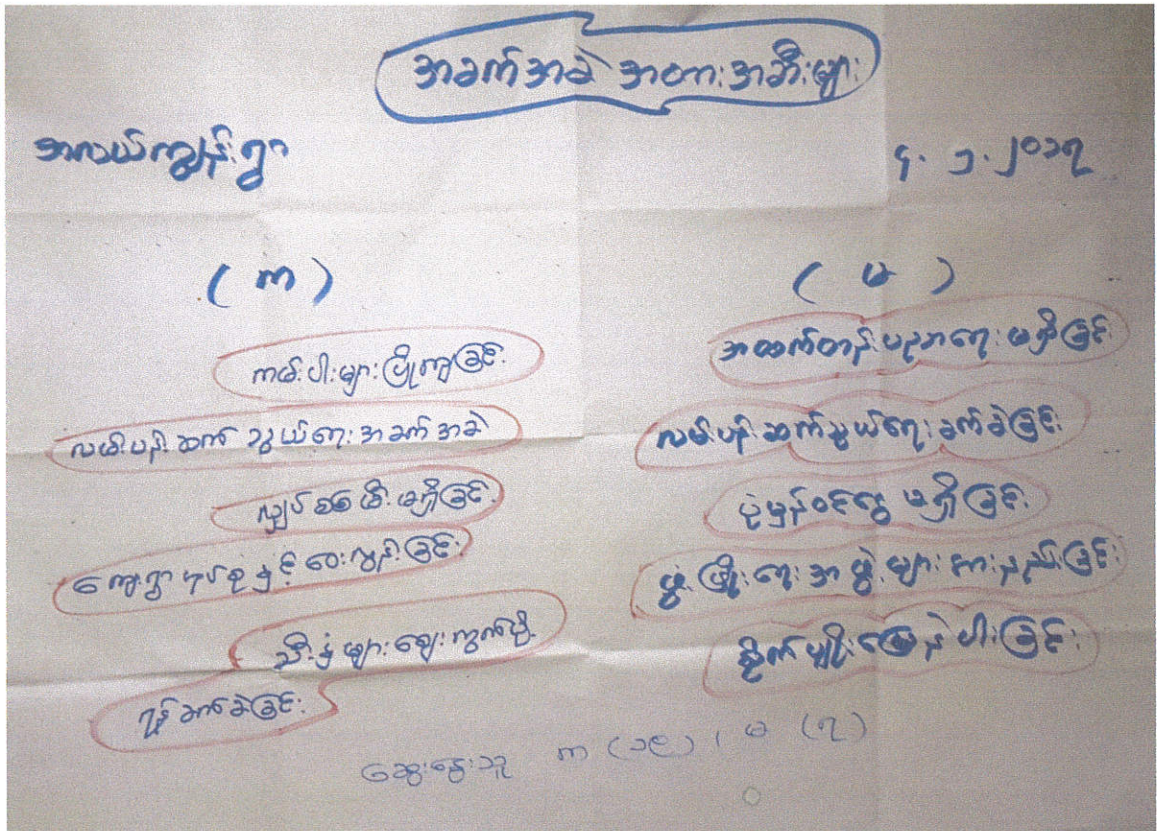 အခက်အခဲ အတားအဆီးများ
အလယ်ကျွန်းရွာ
၄.၁.၂၀၁၇
(က)
(မ)
ကမ်းပါးများပြိုကျခြင်း
လမ်းပန်းဆက်သွယ်ရေးအခက်အခဲ
လျှပ်စစ်မီးမရှိခြင်း
ကျေးရွာအုပ်စုနှင့်ဝေးလွန်းခြင်း
သီးနှံများဈေးကွက်ပို့
ရန်ခက်ခဲခြင်း
အထက်တန်းပညာရေးမရှိခြင်း
လမ်းပန်းဆက်သွယ်ရေးခက်ခဲခြင်း
ပုံမှန်ဝင်ငွေမရှိခြင်း
ဖွံ့ဖြိုးရေးအဖွဲ့များအားနည်းခြင်း
စိုက်ပျိုးမြေနဲပါးခြင်း
ဆွေးနွေးသူ က (၁၉) ၊ မ (၇)